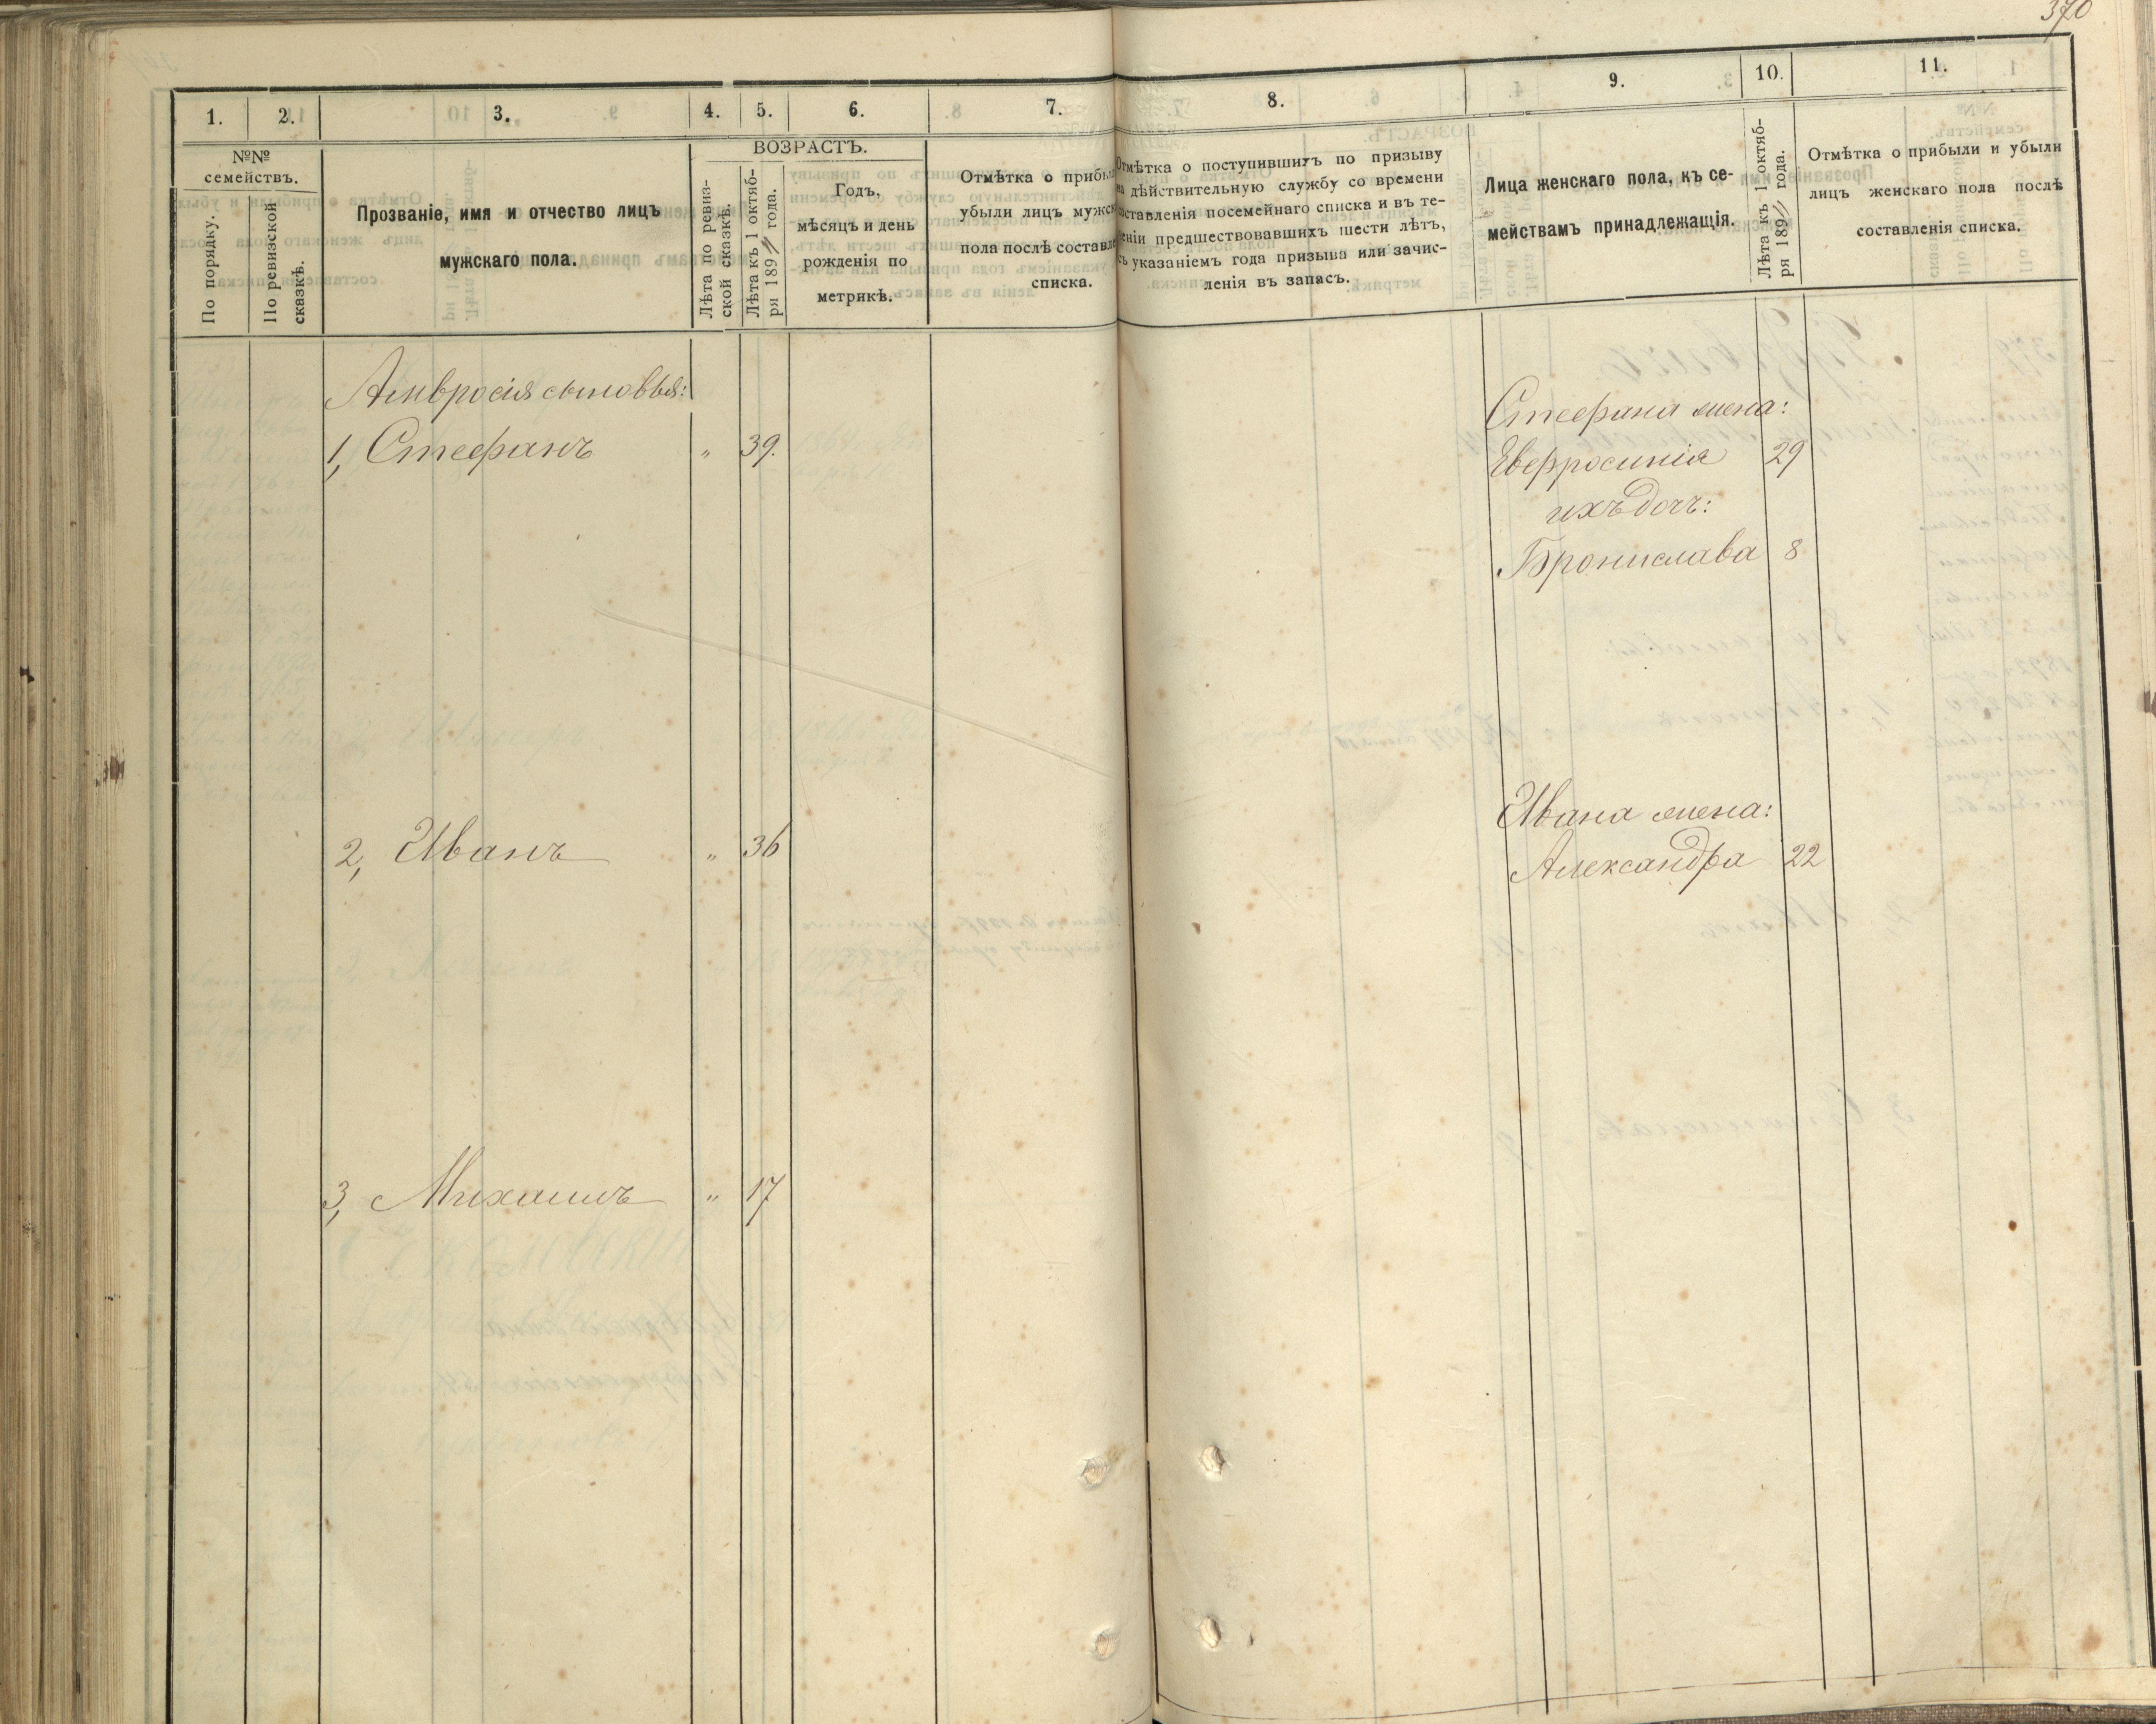 370
1.
2.
3.
4.
5.
6.
7.
8.
9.
10.
11.
№№
семействъ.
По порядку.
По ревизской
сказкѣ.
Прозваніе, имя и отчество лицъ
мужскаго пола.
ВОЗРАСТЪ.
Лѣта по ревиз-
ской сказкѣ.
Лѣта къ 1 октяб-
ря 189 года.
Годъ,
мѣсяцъ и день
рожденія по
метрикѣ.
Отмѣтка о прибы
убыли лицъ мужск
пола послѣ составле
списка.
Отмѣтка о поступившихъ по призыву
на дѣйствительную службу со времени
составленія посемейнаго списка и въ те-
ченіи предшествовавшихъ шести лѣтъ,
съ указаніемъ года призыва или зачис-
ленія въ запасъ.
Лица женскаго пола, къ се-
мействамъ принадлежащія.
Лѣта къ 1 октяб-
ря 189 года.
Отмѣтка о прибыли и убыли
лицъ женскаго пола послѣ
составленія списка.
Амвросія сыновья:
1, Стефанъ " 39.
Стефана жена:
Евфросинія 29
ихъ дочь:
Брониславa 8
2, Иванъ " 36
Ивана жена:
Александра 22
3, Михаилъ " 17